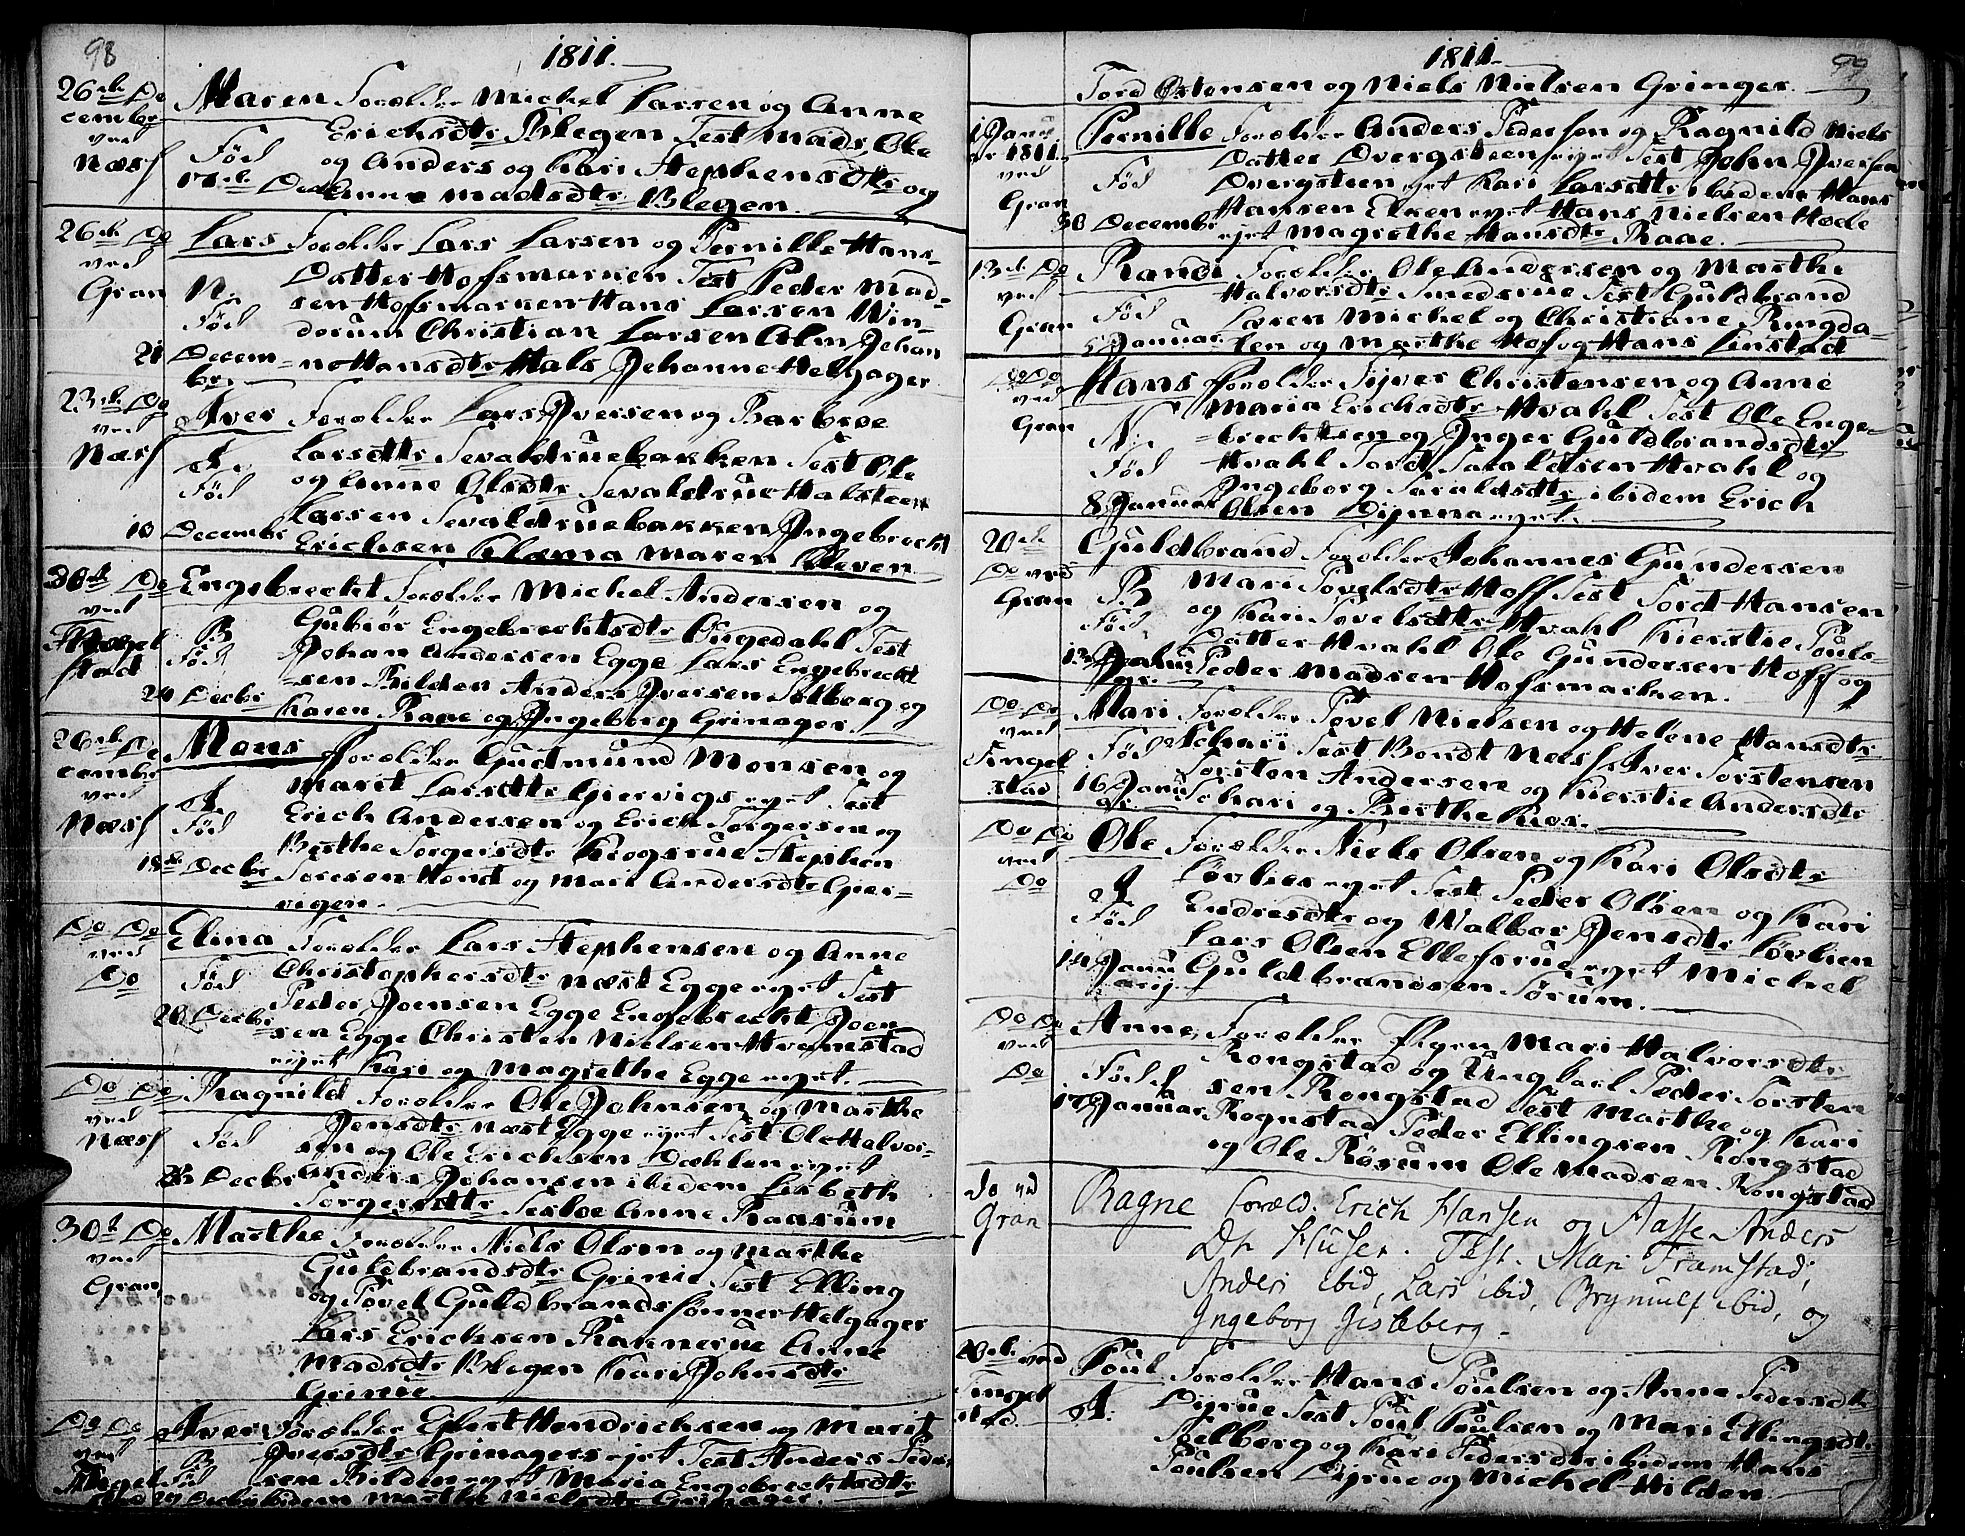 98
1811.
26de De
cembr
ved
Næss
Maren Forælder Michel Larsen og Anne
Erichsdtr Blegen Test Mads, Ole
Fød og Anders og Kari Stephensdtr og
17de Decbr Anne Madsdtr Blegen.
26de Do
ved
Gran
Lars Forælder Lars Larsen og Pernille Hans-
Datter Hofsmarken Test Peder Mad-
N. sen Hofsmarken Hans Larsen Win-
Fød dorum Christian Larsen Alm Johan
21 Decem- ne Hansdtr Hals Johanne Helgager
br.
23de Do
ved
Næss
Iver Forælder Lars Iversen og Barbroe
Larsdtr Sevaldruebakken Test Ole
Fød og Anne Olsdtr Sevaldrue Halsteen
Larsen Sevaldruebakken Ingebrecht
10 Decembr Erichsen Klæma Maren Kleven
30te Do
ved
Tingel
stad
Engebrecht Forælder Michel Andersen og
B Gubiør Engebrechtsdtr Ougedahl Test
Fød Johan Andersen Egge Lars Engebrecht
-sen Bilden Anders Iversen Solberg og
24 Decbr Karen Raae og Ingeborg Grinager.
26de De
cembr
ved
Næss
Mons Forælder Gudmund Monsen og
Marit Larsdtr Giervigs eyet Test
Fød Erich Andersen og Erich Torgersen og
Berthe Torgersdtr Krogsrue Stephen
18de Decbr Toresen Hond og Mari Andersdtr Gier-
vigen.
Do Do
ved
Do
Elina Forælder Lars Stephensen og Anne
Fød Christophersdtr næst Egge eyet Test
Peder Joensen Egge Engebrecht Joen
20 Decbr sen Egge Christen Nielsen Hvamstad
eyet Kari og Magrethe Egge eyet.
Do Do
ved
Næss
Ragnild Forælder Ole Johnsen og Marthe
Fød Jensdtr næst Egge eyet Test Ole Halvor-
sen og Ole Erichsen Dæhlen eyet
Decbr Anders Johansen ibidem Lisbeth
Torgersdtr Anne Raasum
30t Do
ved
Gran
Marthe Forælder Niels Olsen og Marthe
Guldbrandsdtr Grinie Test Elling
og Povel Guldbrandssønner Helgager
Lars Erichsen Raknerue Anne
Madsdtr Blegen Kari Johnsdtr
Grinie.
Do Do
ved
Iver Forælder Ebbert Hendrichsen og Marit
B Iversdtr Grinagers eyet Test Anders Peder
Fød sen Bilden eyet Maria Engebrechtsdtr
Decbr ibidem Marthe Nielsdtr Grinager.
1811.
99
Tord Østensen og Niels Nielsen Gringer.
1 Janu
ar 1811.
ved
Gran
Pernille Forælder Anders Pedersen og Ragnild Niels
Datter Dvergsteen eyet Test John Iversen
Fød Dvergsteen eyet Kari Larsdtr ibidem Hans
Hansen Eken eyet Hans Nielsen Hode
30 Decembr eyet Magrethe Hansdtr Raae.
13de Do
ved
Gran
Randi Forælder Ole Andersen og Marthe
Halvorsdtr Smedsrue Test Guldbrand
Fød Loren Michel og Christiane Ringda-
5 Januar len og Marthe Hof og Hans Linstad
Do Do
ved
Gran
Hans Forælder Siver Christensen og Anne
Maria Erichsdtr Hvahl Test Ole Enge-
N. -brechtsen og Inger Guldbrandsdtr
Fød Hvahl Tord Haraldsen Hvahl og
Ingeborg Haraldsdtr ibidem Erich
8 Januar Olsen Dynna eyet.
20de
Do ved
Gran
Guldbrand Forælder Johannes Gundersen
B Mari Povelsdtr Hoff Test Tord Hansen
Fød og Kari Povelsdtr Hvahl Kierstie Pouls-
Datter Hvahl Ole Gundersen Hoff og
13 Janu Peder Madsen Hofsmarken.
ar.
Do Do
ved
Tingel
stad
Mari Forælder Povel Nielsen og Helene Hansdtr
Fød Schari Test Berndt Næss, Iver Torstensen
Torsten Andersen og Kierstie Andersdtr
16 Janu Schari og Berthe Kios.
ar.
Do Do
ved
Do
Ole Forælder Niels Olsen og Kari Olsdtr
Løvlies eyet Test Peder Olsen og Kari
Fød Endresdtr og Walbor Jensdtr Løvlien
Lars Olsen Ellefsrue eyet Michel
14 Janu Guldbrandsen Sørum.
arij
Do Do
ved
Do
Anne, Forælder Pigen Mari Halvorsdtr
Rongstad og Ungkarl Peder Torsten
Fød sen Rongstad Test Marthe og Kari
17 Januar Rognstad Peder Ellingsen Rongstad
og Ole Røsum Ole Madsen Rongstad
do ved
Gran
Ragne Foræld. Erich Hansen og Aasse Anders
Dr Husen. Test. Mari Framstad,
Anders ibid, Lars ibid, Bryniulf ibid, og
Ingeborg Gisleberg.
20de ved
Tingel
stad.
Poul Forælder Hans Poulsen og Anne Pedersdtr
Dyrue Test Poul Poulsen og Mari Ellingsdtr
Velberg og Kari Pedersdtr ibidem Hans
Poulsen Dyrue og Michel Hilden